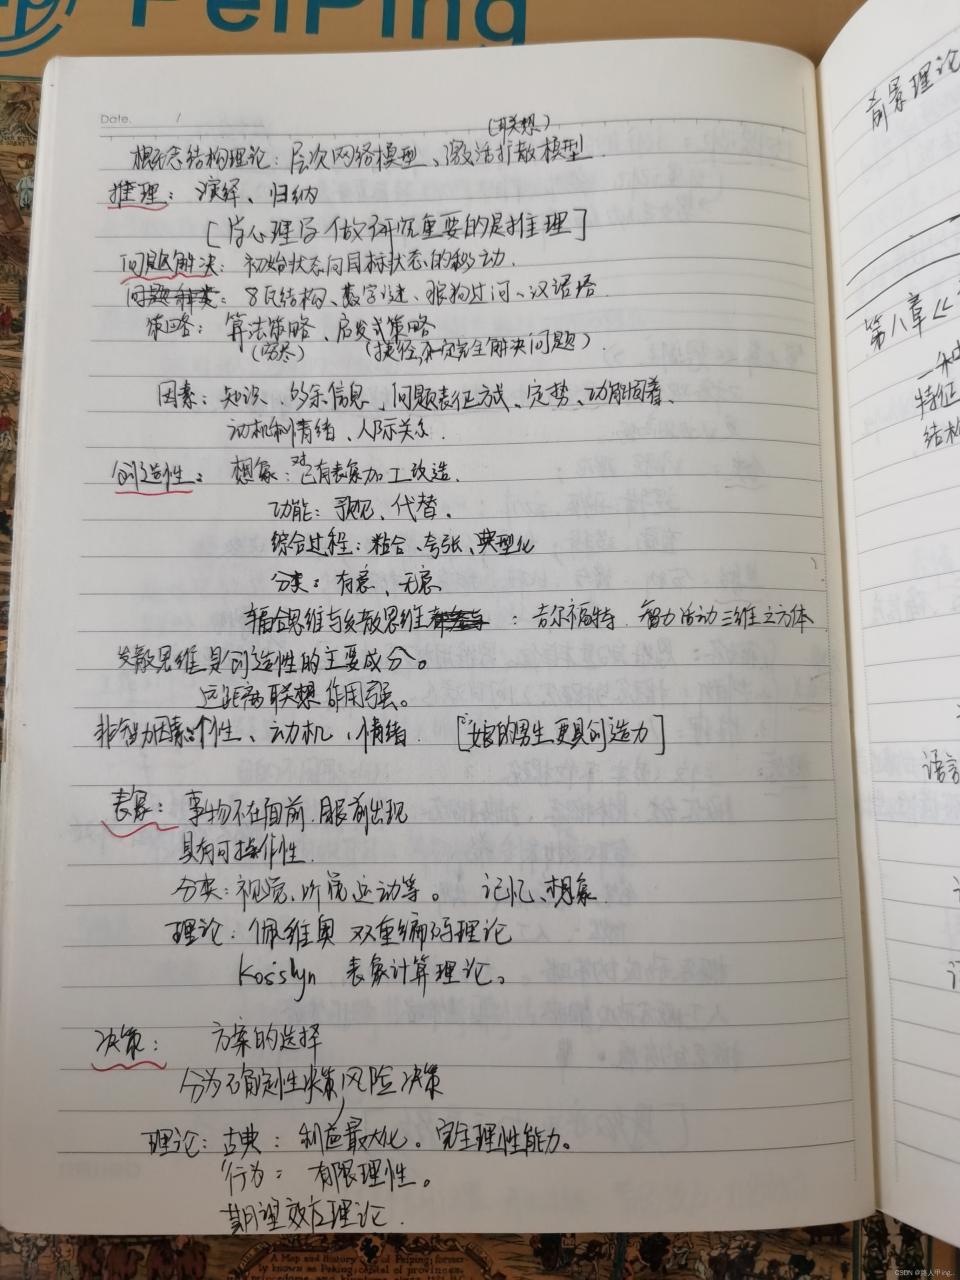 PeiPing
Date.
(联想)
概念结构理论：层次网络模型、激活扩散模型
推理：演绎、归纳
[学心理学做研究重要的是推理]
问题解决：初始状态向目标状态的移动.
问题种类：8瓦结构、数字谜、狼狗过河、汉诺塔
策略：算法策略、启发式策略
(穷尽) (捷径,不一定完全解决问题)
因素：知识、多余信息、问题表征方式、定势、功能固着、
动机和情绪、人际关系.
创造性：想象：对已有表象加工改造.
功能：预见、代替.
综合过程：粘合、夸张、典型化
分类：有意、无意
辐合思维与发散思维：吉尔福特.智力活动三维立方体
发散思维是创造性的主要成分。
远距离联想作用强。
非智力因素：个性、动机、情绪. [娘的男生更具创造力]
表象：事物不在面前.眼前出现
具有可操作性.
分类：视觉、听觉运动等。 记忆、想象
理论：佩维奥 双重编码理论
Kosslyn 表象计算理论。
决策：方案的选择
分为不确定性决策、风险决策
理论：古典：利益最大化。完全理性能力。
行为：有限理性。
期望效应理论.
前景理论
第八章《
特征
结构
语言
A Map and History of Peiping; formerly
known as Peking; capital of provinces,
CSDN @路人甲ing..